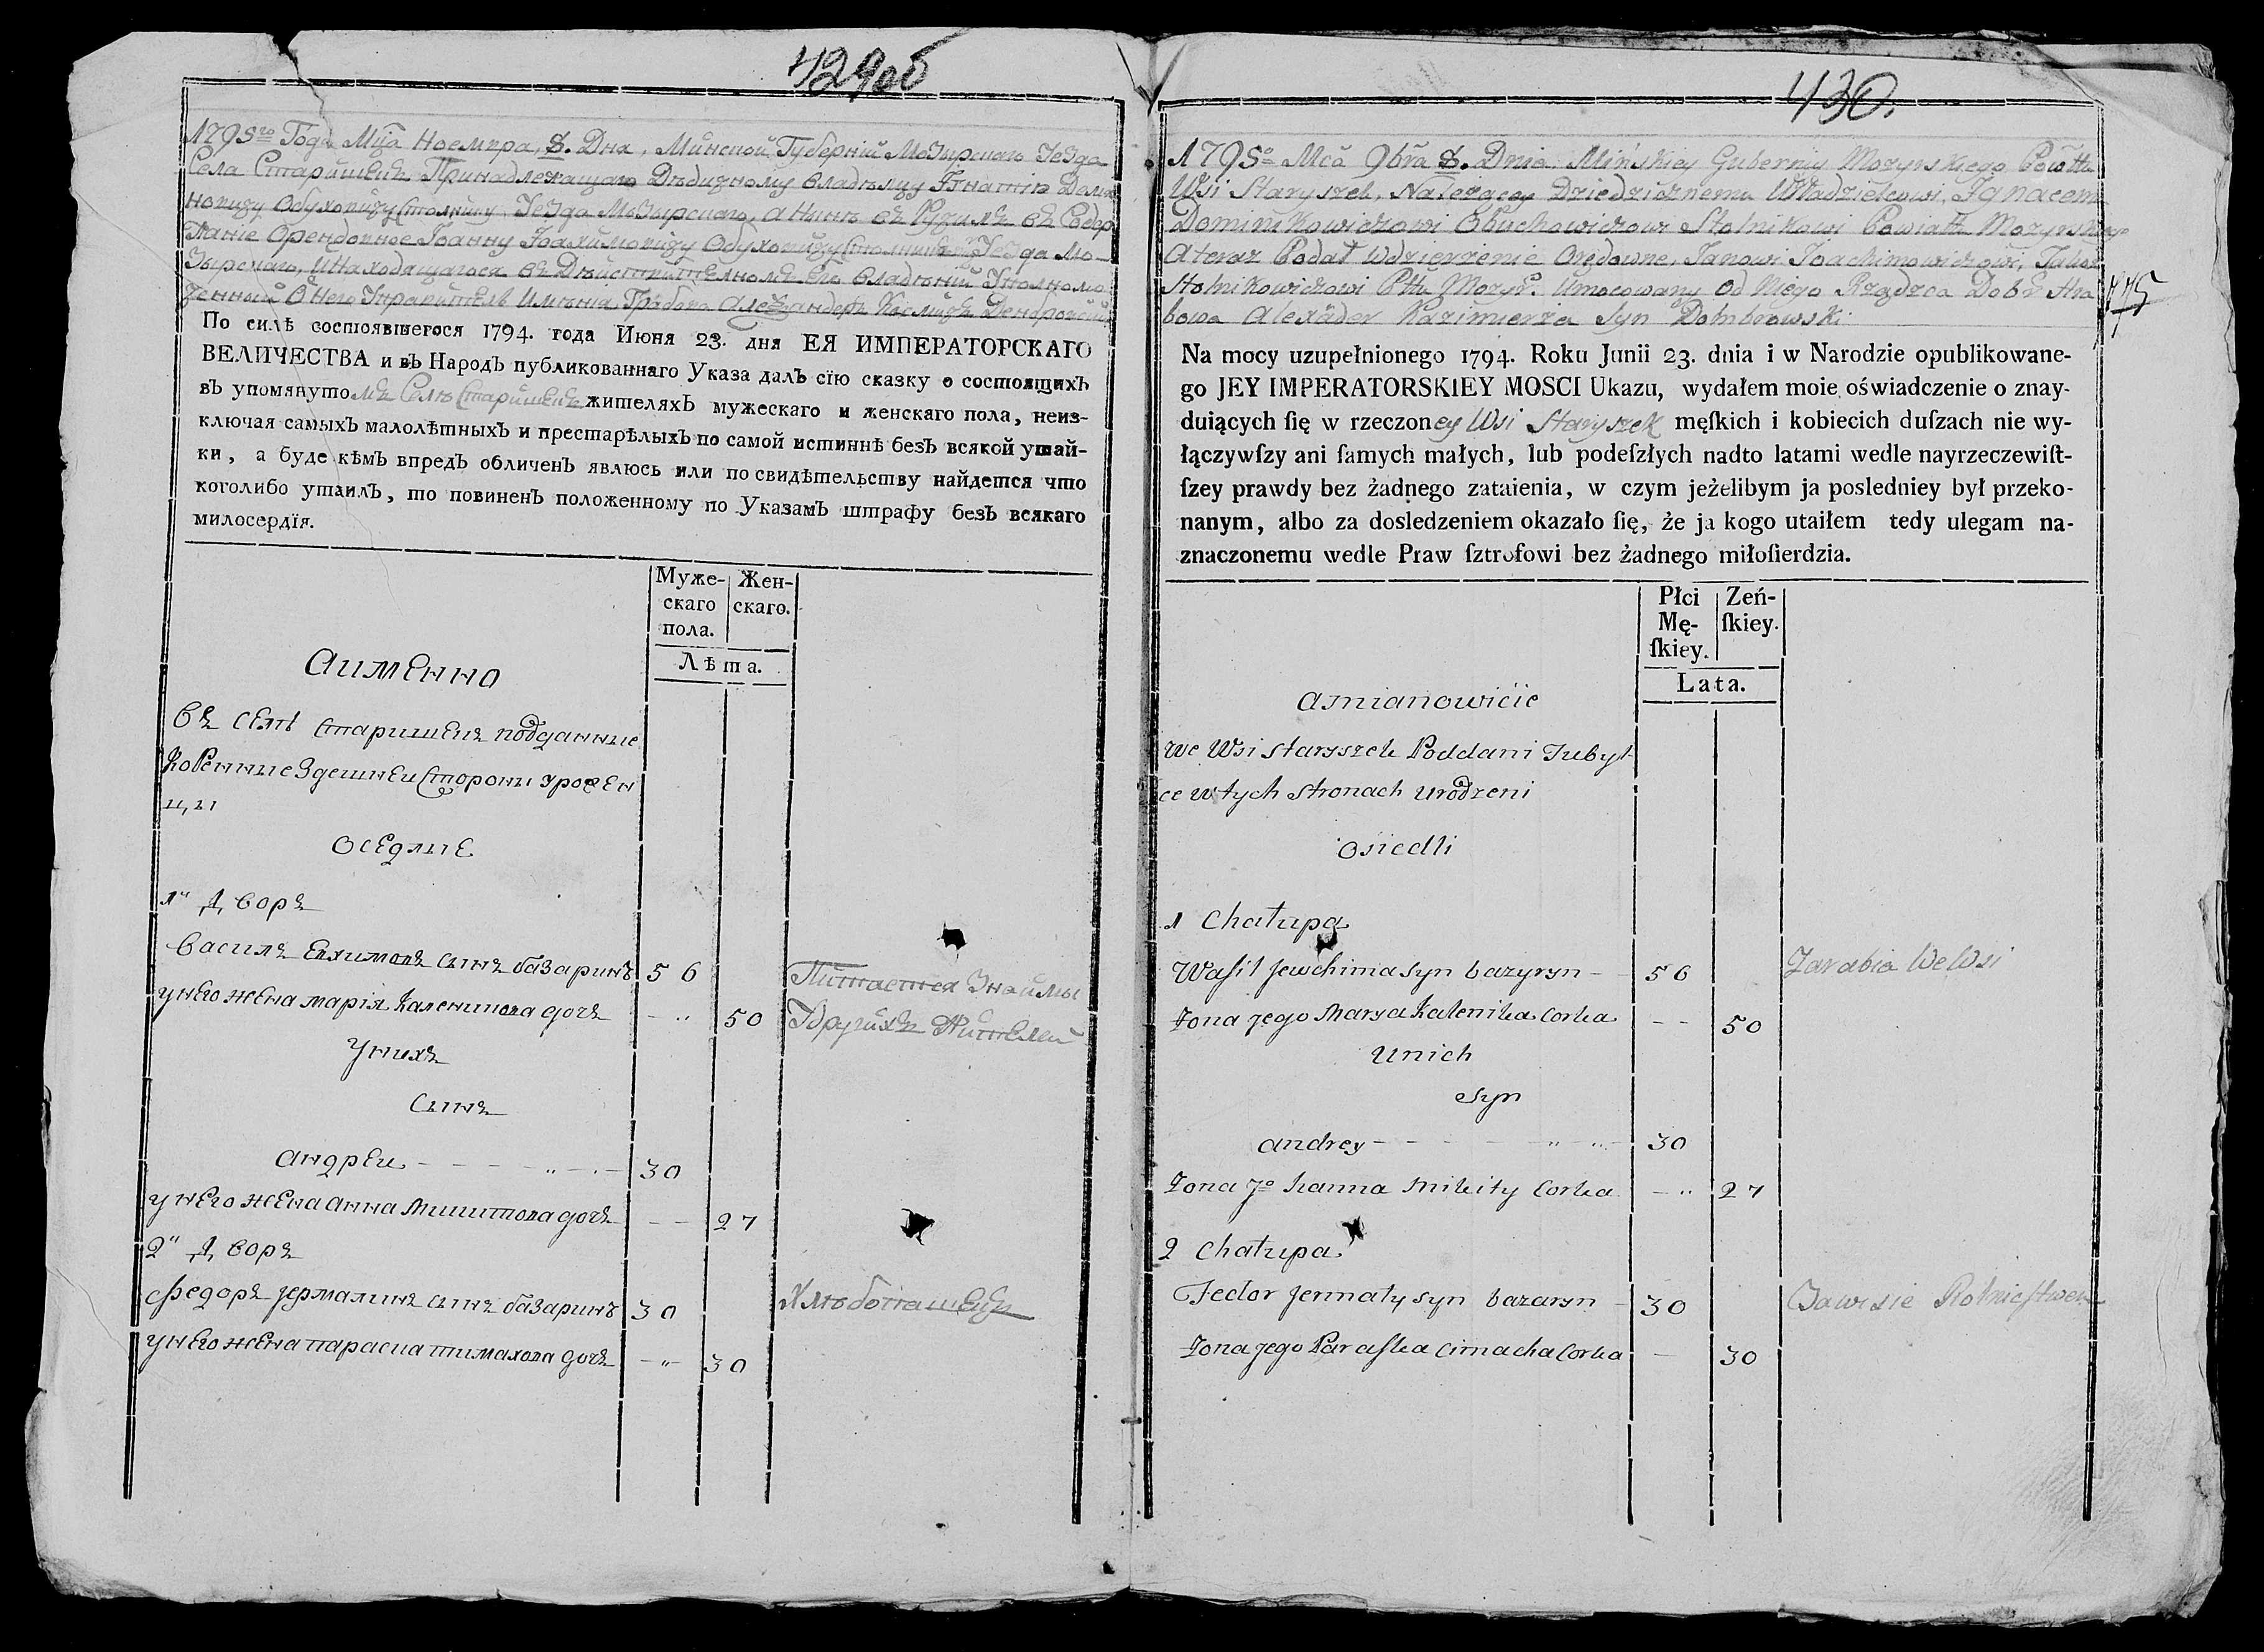 429об
1795го Года Мца Ноемвра, 8. Дня, Минской Губернiи Мозырского Уезда
Села Старишекъ Принадлежащаго Дѣдичному владѣлцу Игнатiю Доми
никовичу Обуховичу Столнику Уезда Мозырского, а нынѣ въ Содер
жанiе Орендовное Iоанну Iоахимовичу Обуховичу Уезда Мо-
зырского, и находящагося въ Дѣйствителномъ его владѣнiи Уполномо
ченный О Него Управитель Имѣнiя Грабова Александеръ Домбровскiй
По силѣ состоявшегося 1794. года Июня 23. дня ЕЯ ИМПЕРАТОРСКАГО
ВЕЛИЧЕСТВА и въ Народъ публикованнаго Указа далъ сїю сказку о состоящихъ
въ упомянутомъ Селѣ Старишекъ жителяхъ мужескаго и женскаго пола, неиз-
ключая самыхъ малолѣтныхъ и престарѣлыхъ по самой истиннѣ безъ всякой утай-
ки, а буде кѣмъ впредъ обличенъ явлюсь или по свидѣтельству найдется что
коголибо утаилъ, то повиненъ положенному по Указамъ штрафу безъ всякаго
милосердїя.
Муже-скаго пола. Жен-скаго.
Лѣта.
Аименно
въ селѣ старишекъ подданные
коренные здешней стороны урожен
цы
оседлые
1й дворъ
василъ евхимовъ сынъ базаринъ 56 Питается Знаймы
унего жена марiя каленикова дочъ - „ 50 Удругихъ Жителей
унихъ
сынъ
андреи - - - - „ - 30
унего жена анна микитова дочъ - - 27
2й дворъ
федоръ ярмалинъ сынъ базаринъ 30 Хлѣбопашецъ
унего жена параска тимахова дочъ - „ - 30
430.
1795o Mca 9bra 8. Dnia Mińskiey Gubernij Mozyrskiego Powiattu
Wsi Staryszek, Należącey Dziedzicznemu Władzielcowi, Ignacem
Dominikowiczowi Obuchowiczowi Stolnikowi Powiattu Mozyrskiego
A teraz Podał Wdzierżenie Orędowne, Janowi Joachimowiczowi,
Stolnikowiczowi Pttu Mozyr: Umocowany Od Niego Rządzca Dobr Hra
bowa Alexąder Kazimierza Syn Dombrowski
775
Na mocy uzupełnionego 1794. Roku Junii 23. dnia i w Narodzie opublikowane-
go JEY IMPERATORSKIEY MOSCI Ukazu, wydałem moie oświadczenie o znay-
duiących ſię w rzeczoney Wsi Staryszek męſkich i kobiecich duſzach nie wy-
łączywſzy ani ſamych małych, lub podeſzłych nadto latami wedle nayrzeczewiſt-
ſzey prawdy bez żadnego zataienia, w czym jeżelibym ja posledniey był przeko-
nanym, albo za dosledzeniem okazało ſię, że ja kogo utaiłem tedy ulegam na-
znaczonemu wedle Praw ſztrofowi bez żadnego miłoſierdzia.
Płci Mę-ſkiey. Zeń-ſkiey.
Lata.
Amianowicie
we Wsi staryszek Poddani Tubyl
ce wtych stronach urodzeni
osiedli
1 Chałupa
Wasil Jewchima syn bazyryn - 56 Zarabia We Wsi
Żona Jego Marya Kalenika Corka - - 50
Unich
Syn
Andrey - - - - „ „ - 30
Żona Jo hanna Mikity Corka - „ 27
2 Chałupa
Fedor Jermały syn bazaryn - 30 Bawi sie Rolnictwem
Żona Jego Paraska Cimacha Corka - 30